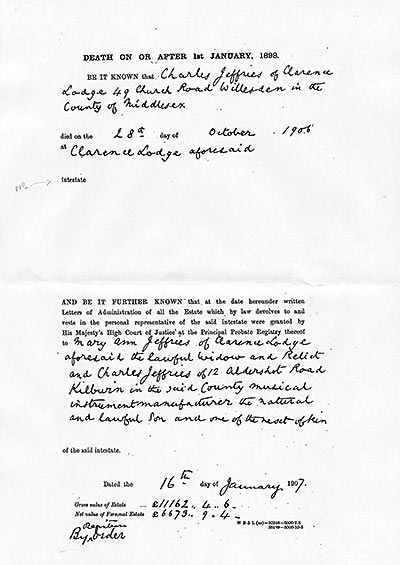 DEATH ON OR AFTER 1st JANUARY, 1898.
BE IT KNOWN that Charles Jeffries of Clarence
Lodge 49 Church Road Willesden in the
County of Middlesex
died on the 28th day of October 1906
at Clarence Lodge aforesaid
intestate
AND BE IT FURTHER KNOWN that at the date hereunder written
Letters of Administration of all the Estate which by law devolves to and
vests in the personal representative of the said intestate were granted by
His Majesty's High Court of Justice at the Principal Probate Registry thereof
to Mary Ann Jeffries of Clarence Lodge
aforesaid the lawful widow and Relict
and Charles Jeffries of 12 Aldershot Road
Kilburn in the said County musical
instrument manufacturer the natural
and lawful Son and one of the next of kin
of the said intestate.
Dated the 16th day of January 1907.
Gross value of Estate ... £11162 . 4 . 6
Net value of Personal Estate £6673 . 9 . 4
By order